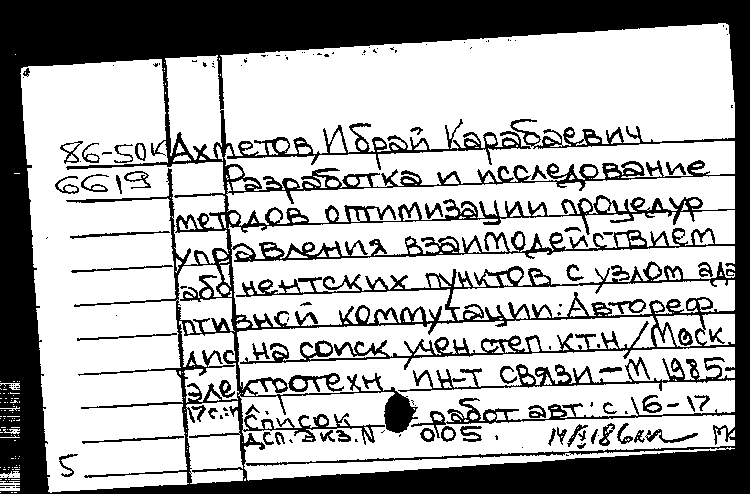 86-50к Ахметов, Ибрай Карабаевич.
6619 Разработка и исследование
методов оптимизации процедур
управления взаимодействием
або нентских пунктов с узлом ада
птивной коммутации: Автореф.
дис. на соиск. учен. степ. к.т.н. / Моск.
электротехн. ин-т связи. - М., 1985 -
17 с.: Список работ авт.: с. 16-17.
дсп. экз. N 005.
5